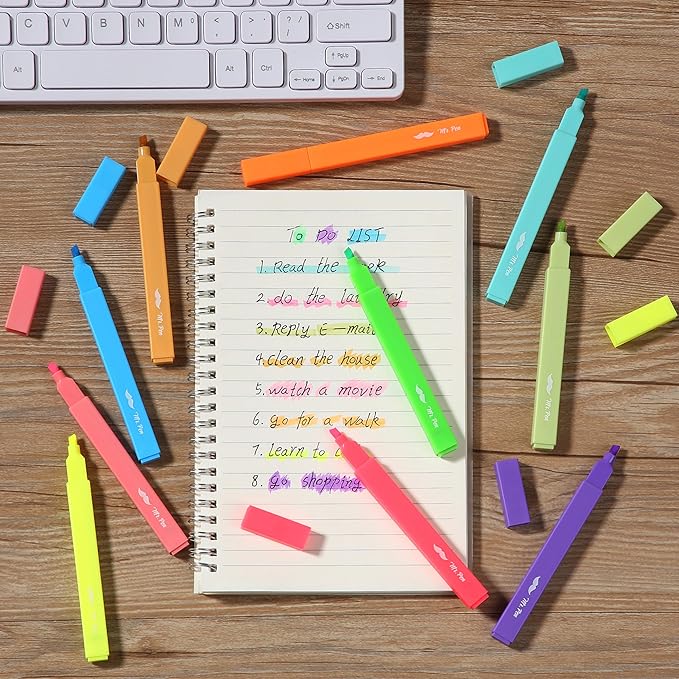 B N M < > ? / Shift
Alt Alt Ctrl Home PgUp PgDn End
Mr. Pen
Mr. Pen
Mr. Pen
Mr. Pen
Mr. Pen
Mr. Pen
Mr. Pen
Mr. Pen
TO DO LIST
1. Read the
2. do the laundry
3. Reply E-mail
4. clean the house
5. watch a movie
6. go for a walk
7. learn to
8. go shopping